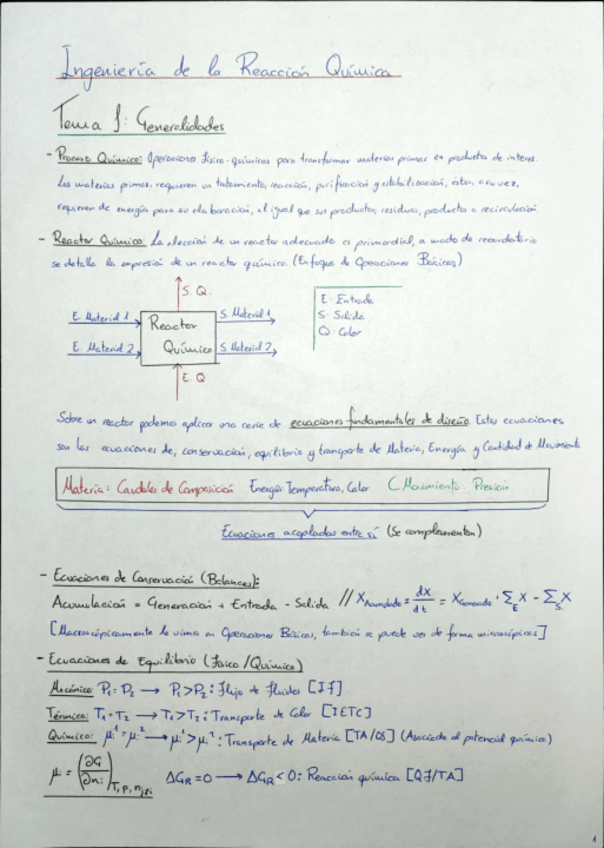 Ingeniería de la Reacción Química
Tema 1: Generalidades
- Proceso Químico: Operaciones físico-químicas para transformar materias primas en productos de interés.
Las materias primas, requieren un tratamiento, reacción, purificación y estabilización, estas, a su vez,
requieren de energía para su elaboración, al igual que sus productos, residuos, producto o recirculación.
- Reactor Químico: La elección de un reactor adecuado es primordial, a modo de recordatorio
se detalla la expresión de un reactor químico. (Enfoque de Operaciones Básicas)
S. Q.
E. Material 1
Reactor
Químico
S. Material 1
E. Material 2
S. Material 2
E. Q
E: Entrada
S: Salida
Q: Calor
Sobre un reactor podemos aplicar una serie de ecuaciones fundamentales de diseño. Estas ecuaciones
son las ecuaciones de, conservación, equilibrio y transporte de Materia, Energía y Cantidad de Movimiento
Materia: Caudales de Composición Energía: Temperatura, Calor C Movimiento: Presión
Ecuaciones acopladas entre sí (Se complementan)
- Ecuaciones de Conservación (Balances):
Acumulación = Generación + Entrada - Salida // X Acumulado = dX/dt = X Generado + Σ_E X - Σ_S X
[Macroscópicamente lo vimos en Operaciones Básicas, también se puede ver de forma microscópicas]
- Ecuaciones de Equilibrio (Físico/Químico)
Mecánico: P₁ = P₂ → P₁ > P₂ : Flujo de Fluidos [IF]
Térmico: T₁ = T₂ → T₁ > T₂ : Transporte de Calor [IETC]
Químico: μᵢ¹ = μᵢ² → μᵢ¹ > μᵢ² : Transporte de Materia [TA/OS] (Asociado al potencial químico)
μᵢ = (∂G/∂nᵢ) T, P, nⱼ≠ᵢ ΔG_R = 0 → ΔG_R < 0 : Reacción química [QF/TA]
1